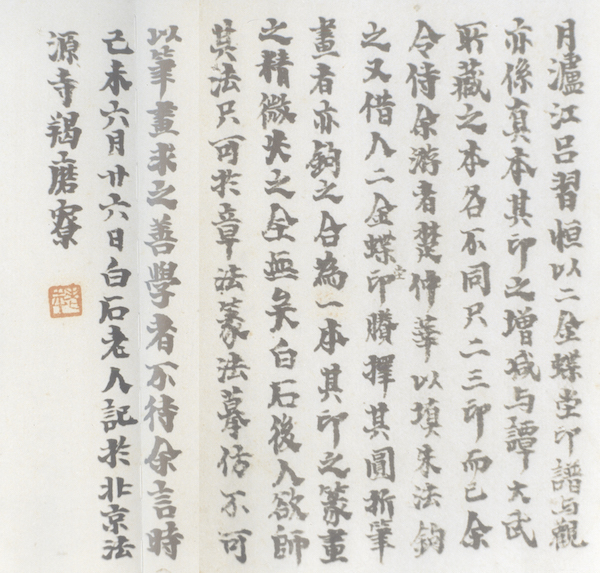 月瀘江吕習恒以二金蝶堂印譜与觀
亦係真本其印之增減与譚大武
所藏之本各不同只二三印而已余
令侍余游者楚仲華以填朱法鈎
之又借入二金蝶堂印賸擇其圓折筆
畫者亦鈎之合為一本其印之篆畫
之精微失之全無矣白石後人欲師
其法只可於章法篆法摹估不可
以筆畫求之善學者不待余言時
己未六月廿六日白石老人記於北京法
源寺羯磨寮